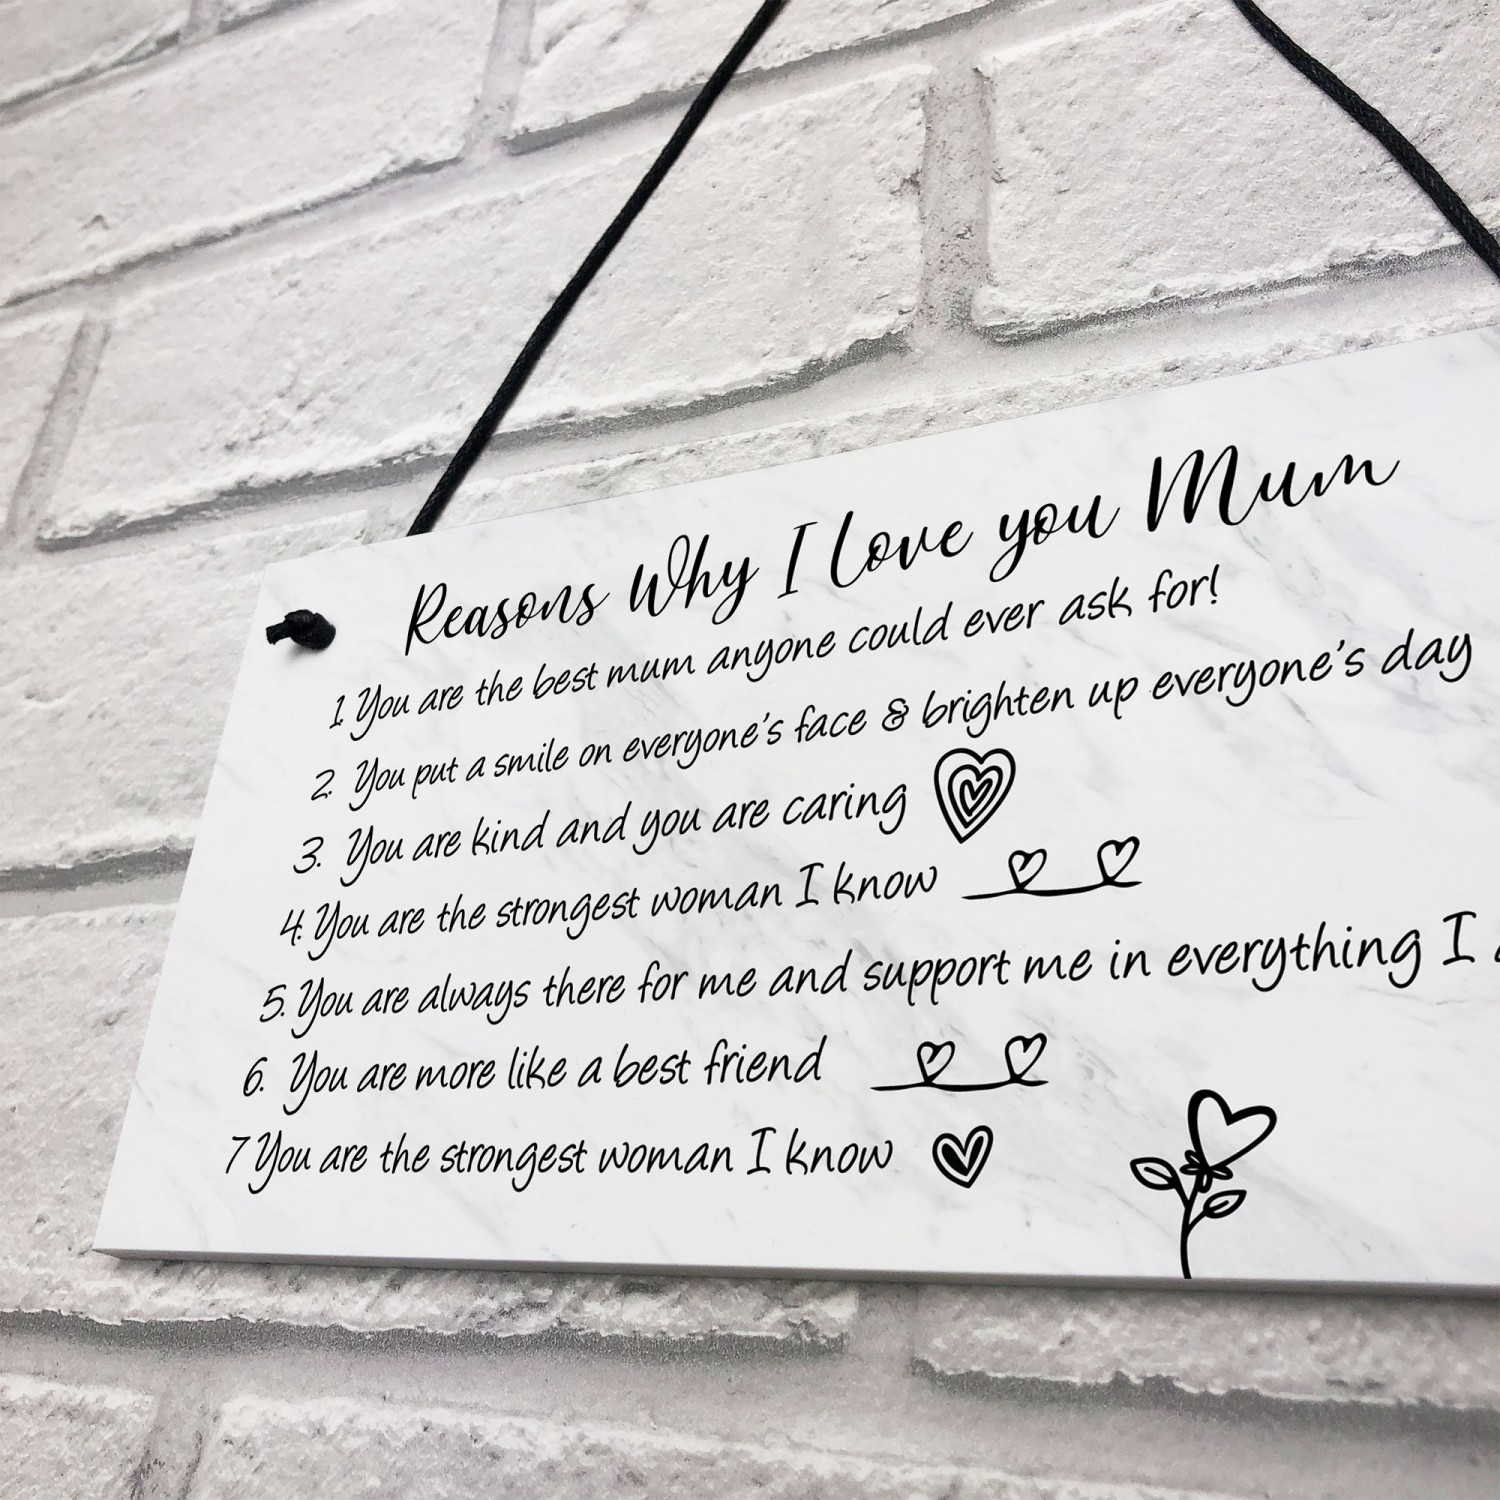 Reasons Why I Love you Mum
1. You are the best mum anyone could ever ask for!
2. You put a smile on everyone's face & brighten up everyone's day
3. You are kind and you are caring
4. You are the strongest woman I know
5. You are always there for me and support me in everything I
6. You are more like a best friend
7 You are the strongest woman I know